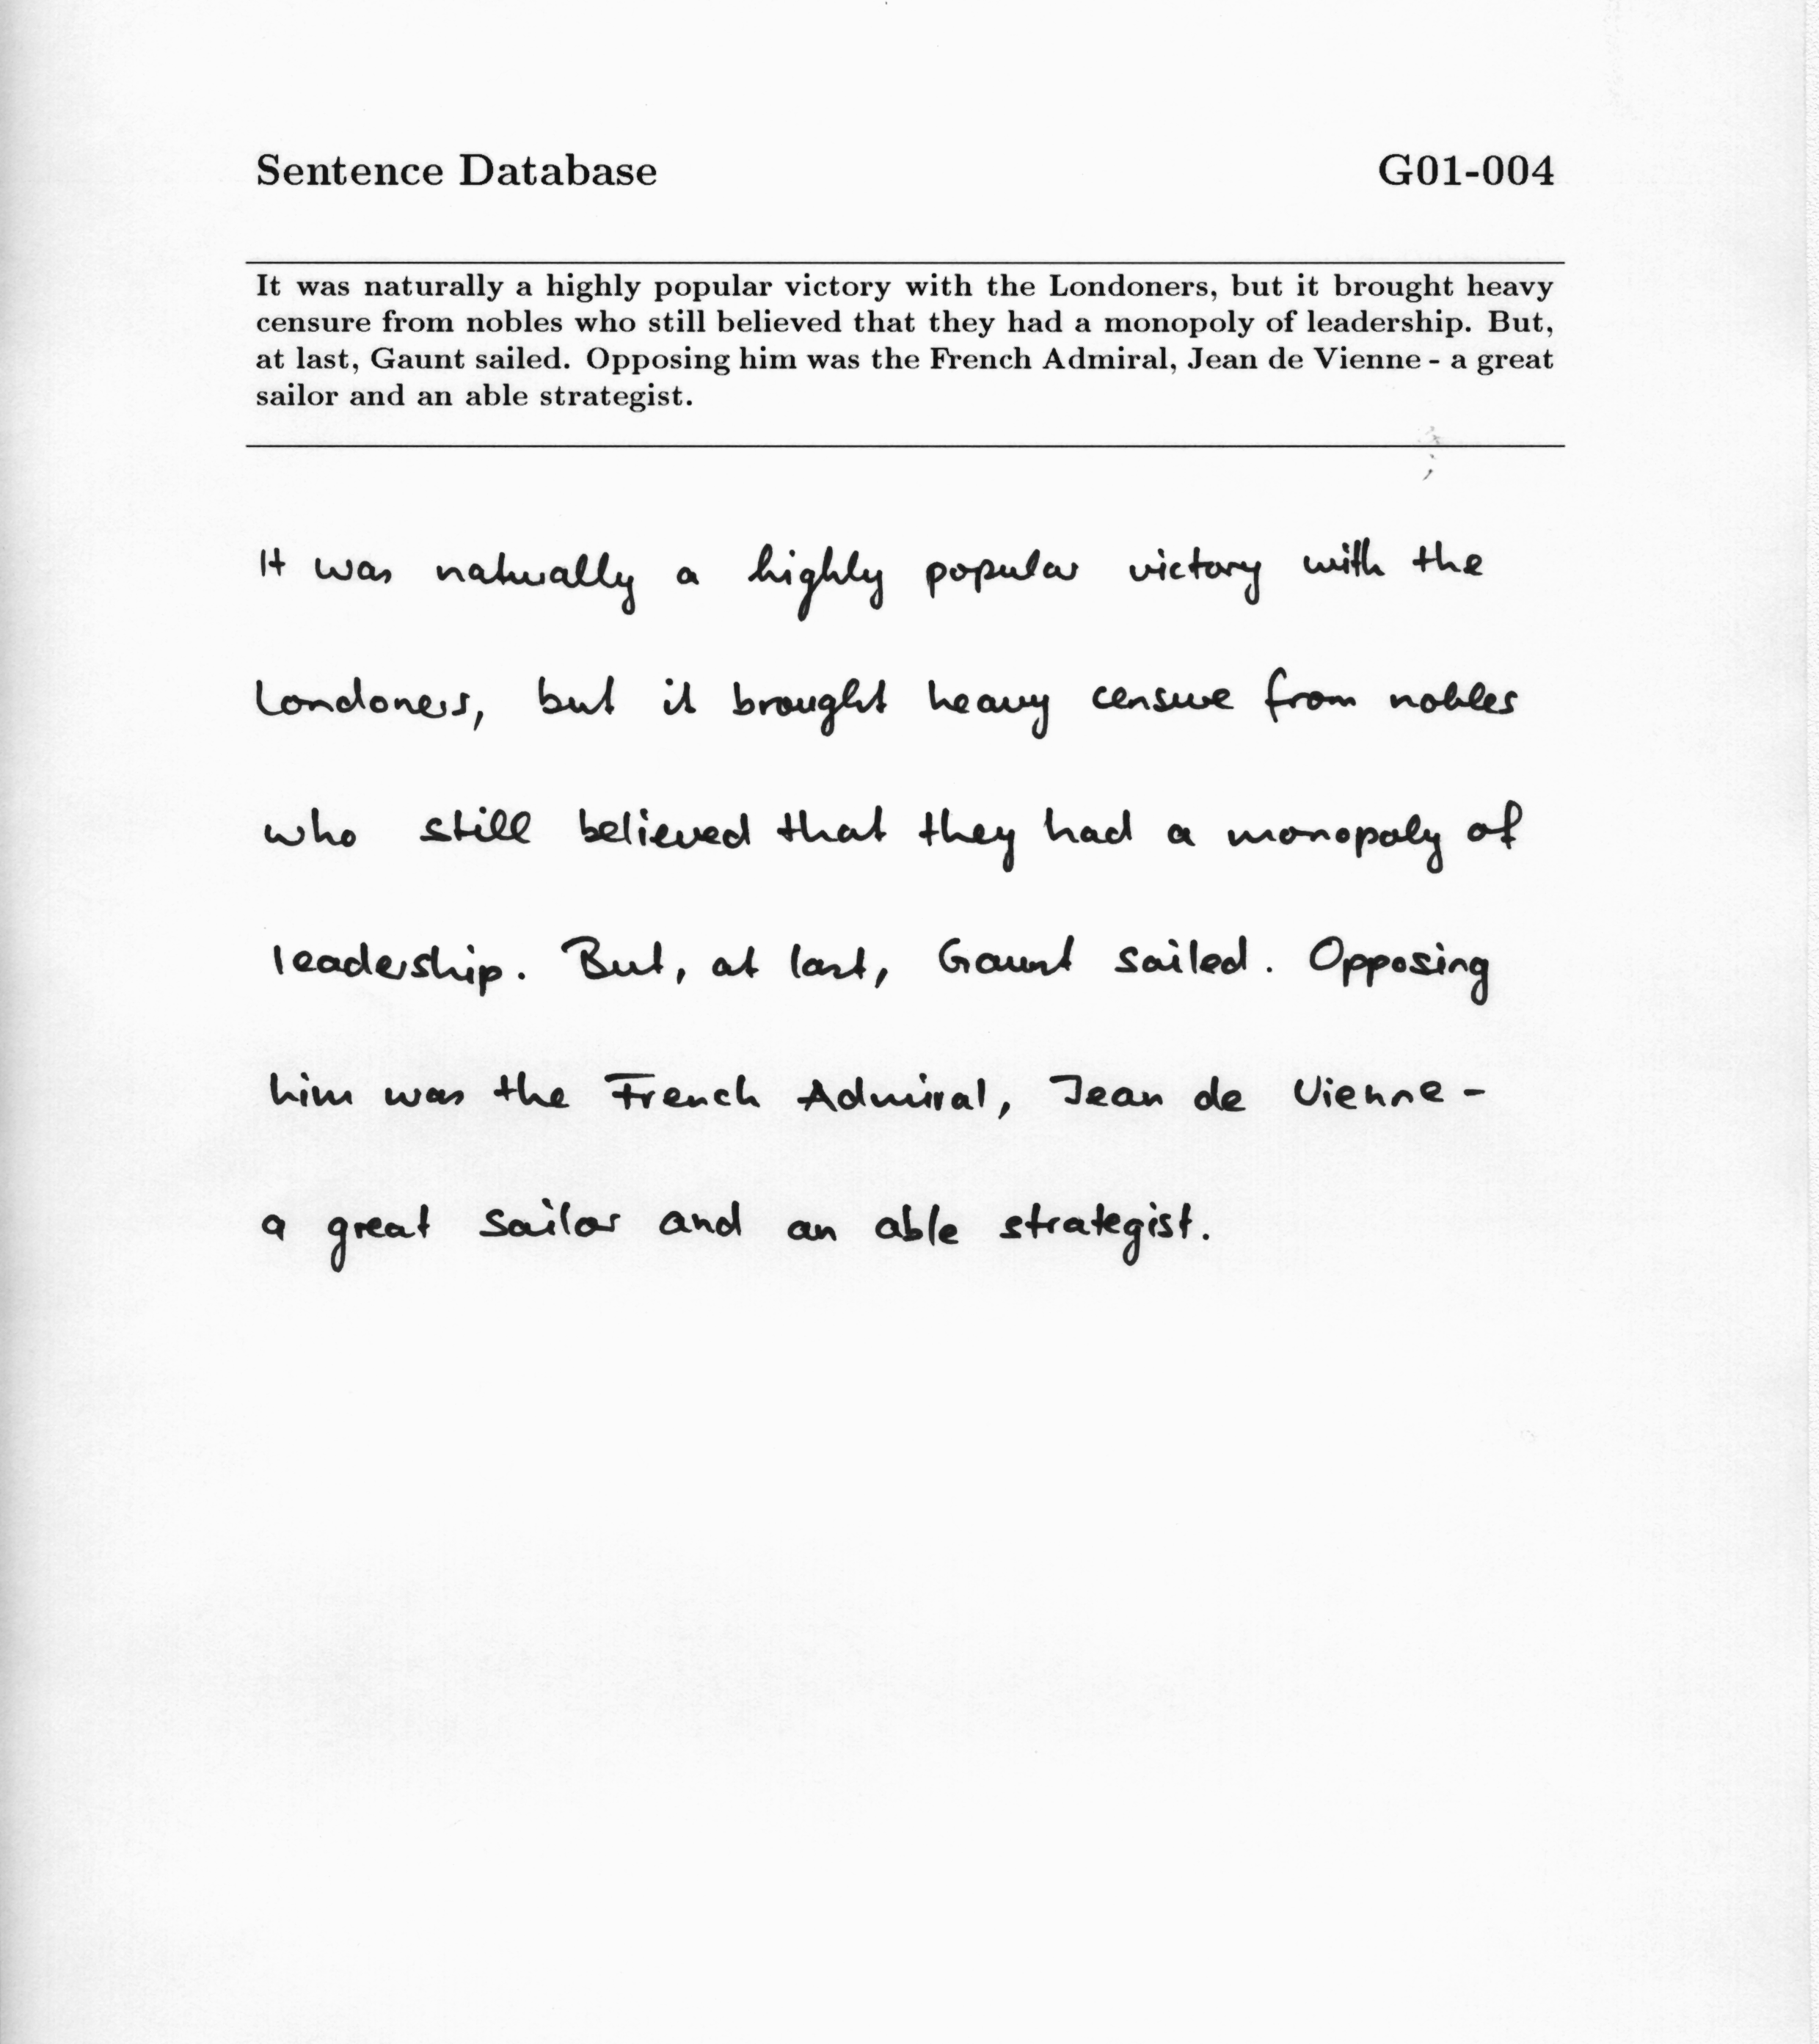 Sentence Database G01-004
It was naturally a highly popular victory with the Londoners, but it brought heavy
censure from nobles who still believed that they had a monopoly of leadership. But,
at last, Gaunt sailed. Opposing him was the French Admiral, Jean de Vienne - a great
sailor and an able strategist.
It was naturally a highly popular victory with the
Londoners, but it brought heavy censure from nobles
who still believed that they had a monopoly of
leadership. But, at last, Gaunt sailed. Opposing
him was the French Admiral, Jean de Vienne -
a great sailor and an able strategist.